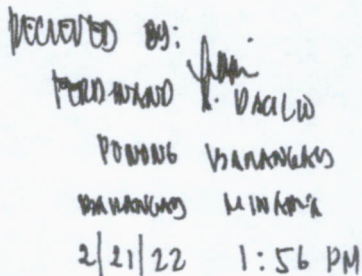 RECIEVED BY:
FERDINAND P. DACILLO
PUNONG BARANGAY
BARANGAY
2/21/22 1:56 PM